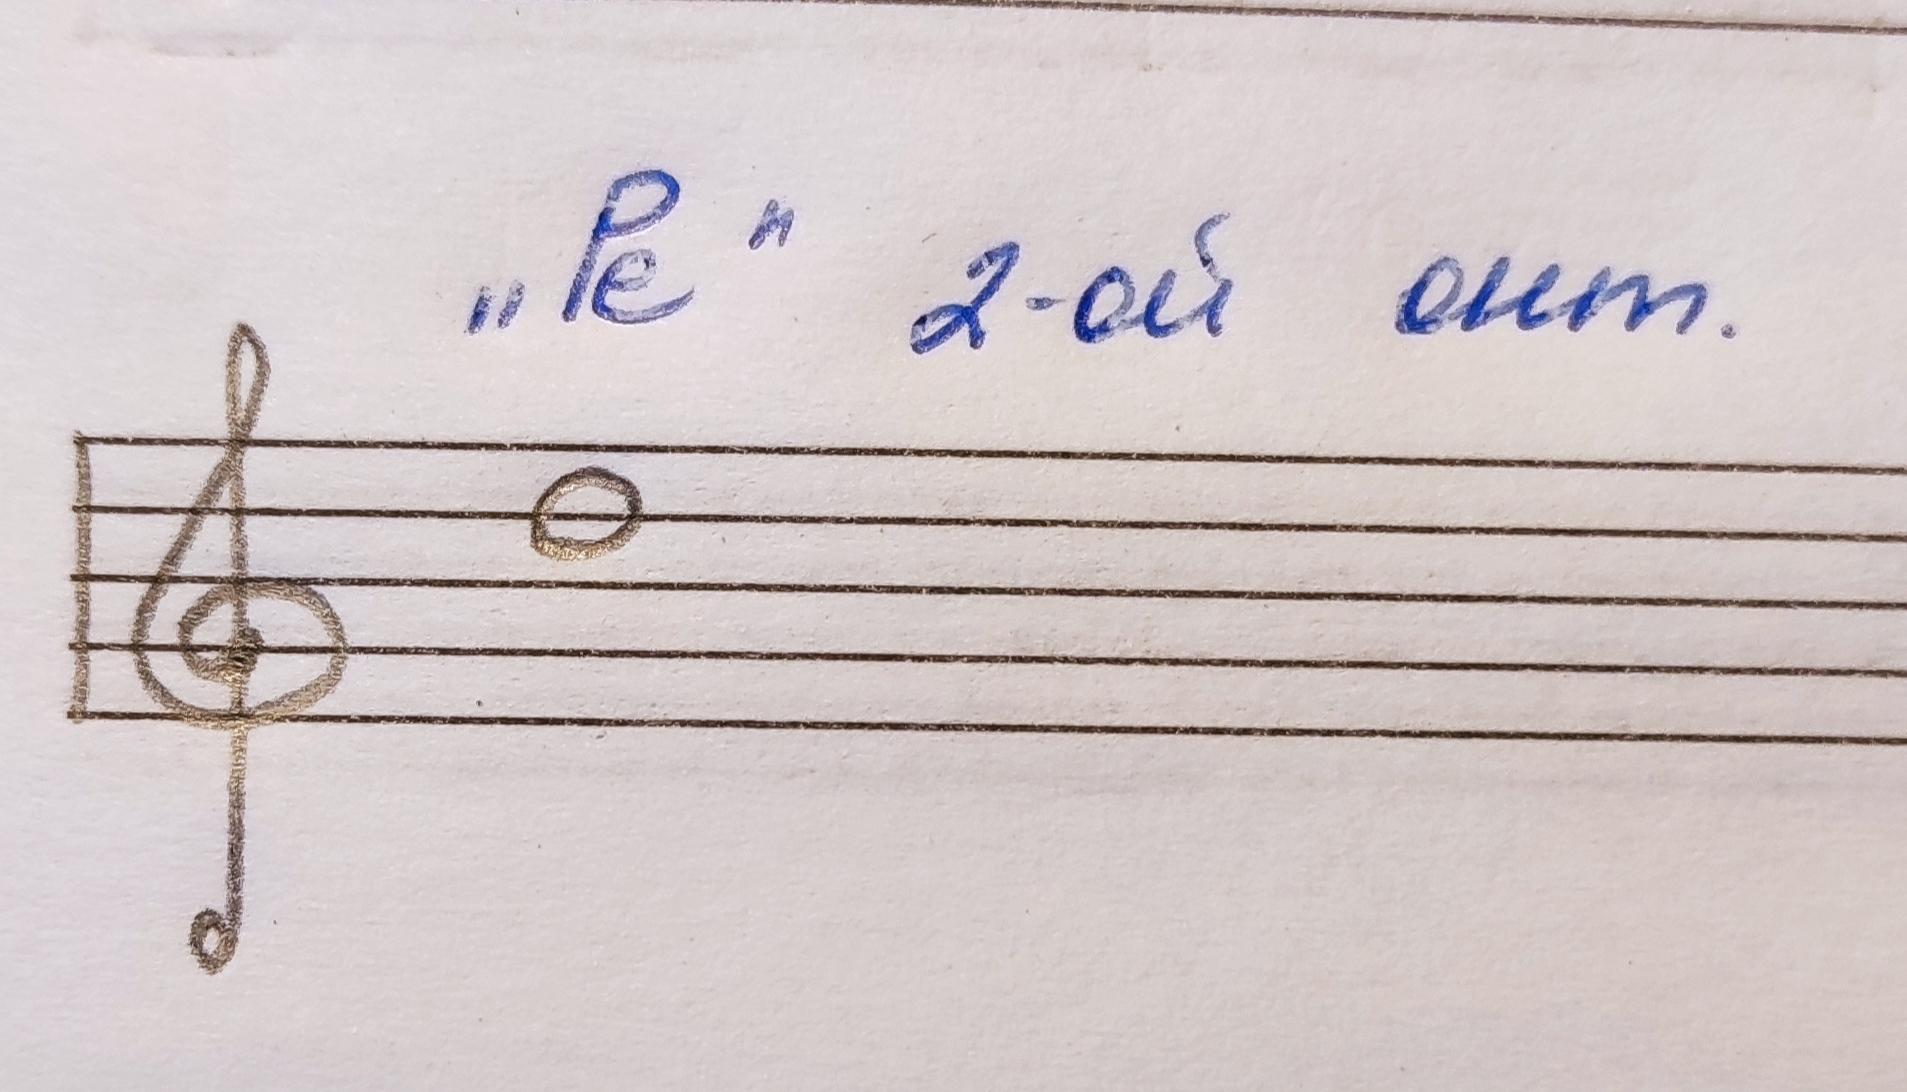 „Ре" 2-ой окт.